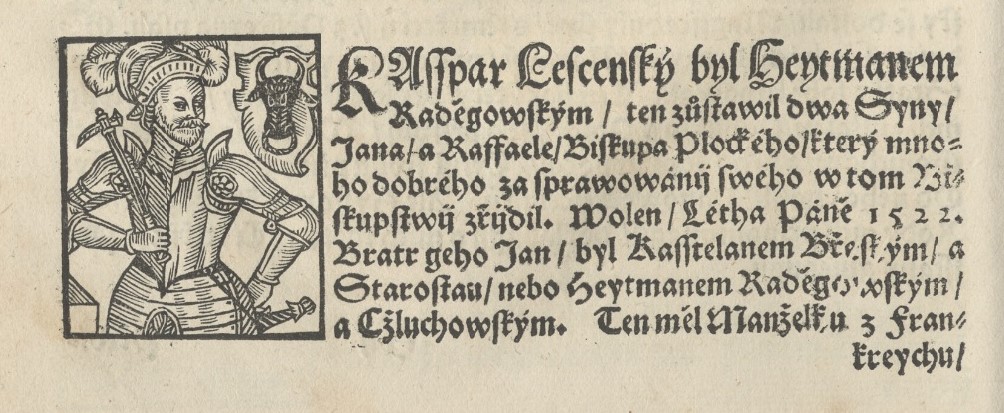 KAsspar Lescenský byl Heytmanem
Raděgowským / ten zůstawil dwa Syny /
Jana / a Raffaele / Biskupa Plockého / který mno=
ho dobrého za sprawowánij swého w tom Bi=
skupstwij zřijdil. Wolen / Létha Páně 1522.
Bratr geho Jan / byl Kasstelanem Břeským / a
Starostau / nebo Heytmanem Raděgowským /
a Cžluchowským. Ten měl Manželku z Fran=
kreychu /